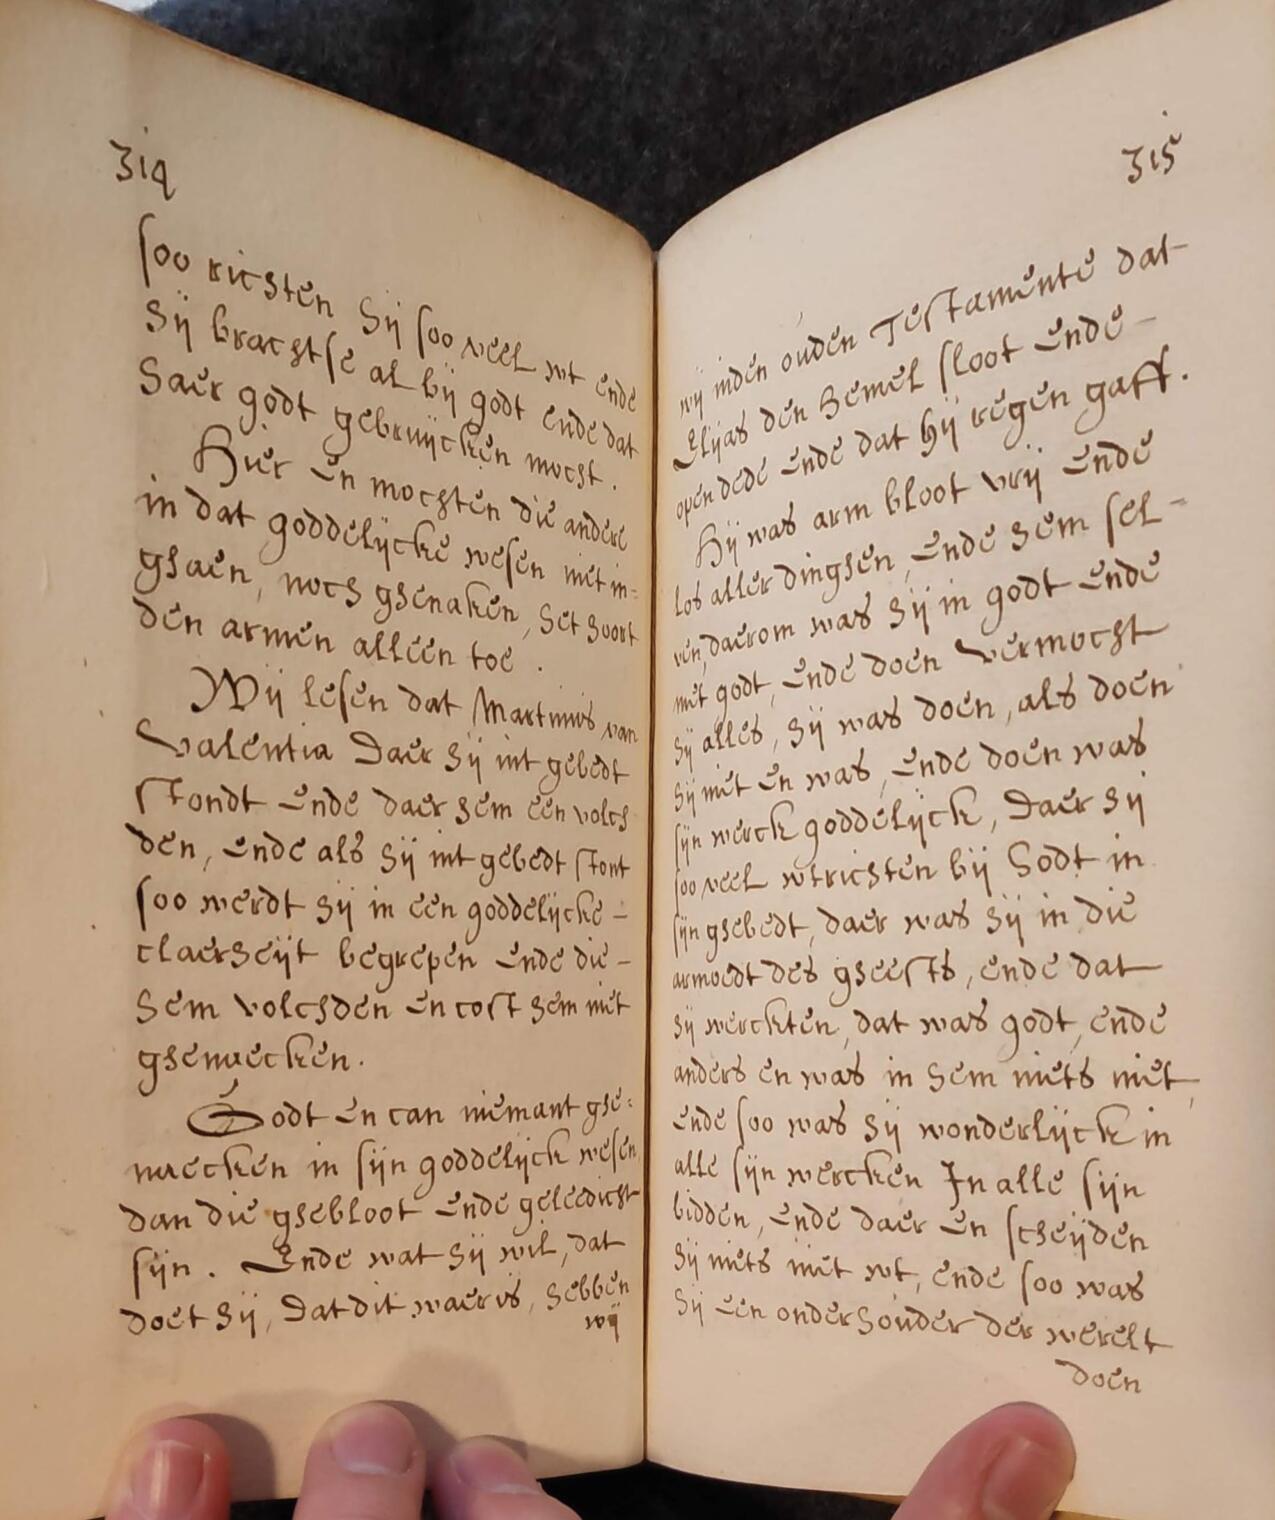 314
soo richten hij soo veel wt ende
hij brachtse al bij godt ende dat
haer godt gebruijcken mocht.
Hier en mochten die andere
in dat goddelijcke wesen niet in=
ghaen, noch ghenaken, het hoort
den armen alleen toe.
Wij lesen dat Martinus van
Valentia daer hij int gebedt
stondt ende daer hem een volch
den, ende als hij int gebedt stont
soo werdt hij in een goddelijcke –
claerheijt begrepen ende die –
hem volchden en cost hem niet
ghenaecken.
Godt en can niemant ghe=
naecken in sijn goddelijck wesen
dan die ghebloot ende geleedicht
sijn. Ende wat hij wil, dat
doet hij, dat dit waer is, hebben
wij
315
wij inden ouden Testamente dat
Elijas den hemel sloot ende –
open dede ende dat hij regen gaff.
Hij was arm bloot vrij ende
los aller dinghen, ende hem sel=
ven, daerom was hij in godt ende
met godt, ende doen vermocht
hij alles, hij was doen, als doen
hij niet en was, ende doen was
sijn werck goddelijck, daer hij
soo veel wtrichten bij Godt in
sijn ghebedt, daer was hij in die
armoedt des gheests, ende dat
hij werckten, dat was godt, ende
anders en was in hem niets niet,
ende soo was hij wonderlijck in
alle sijn wercken In alle sijn
bidden, ende daer en scheijden
hij niets niet wt, ende soo was
hij een onderhouder der werelt
doen